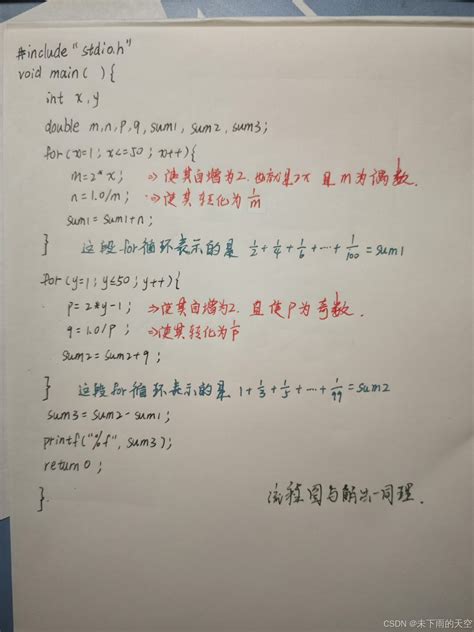 #include "stdio.h"
void main( ) {
int x, y
double m,n,p,q, sum1, sum2, sum3;
for(x=1; x<=50; x++){
m=2*x; ⇒ 使其自增为2. 也就是2x 且m为偶数.
n=1.0/m; ⇒ 使其转化为 1/m
sum1=sum1+n;
} 这段for循环表示的是 1/2+1/4+1/6+…+1/100=sum1
for(y=1; y≤50; y++){
p=2*y-1; ⇒使其自增为2. 且使p为奇数.
q=1.0/p; ⇒使其转化为1/p
sum2=sum2+q;
} 这段for循环表示的是 1+1/3+1/5+…+1/99=sum2
sum3=sum2-sum1;
printf("%f", sum3);
return 0;
}
流程图与解法一同理.
CSDN @未下雨的天空